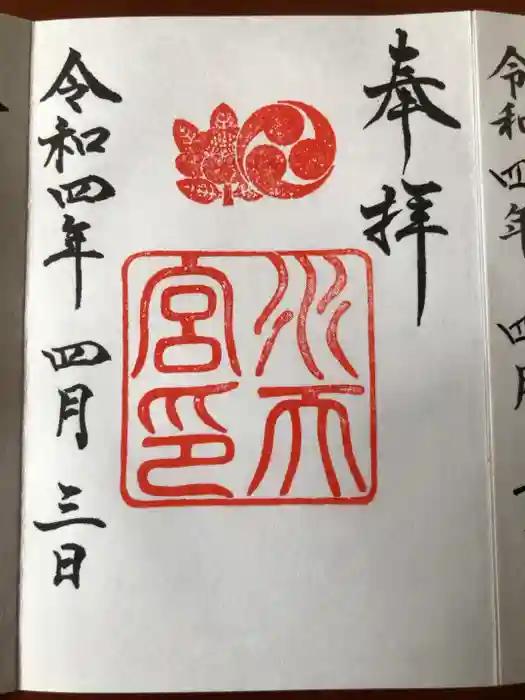 令和四年
四月
奉拝
水天
宮印
令和四年 四月 三日